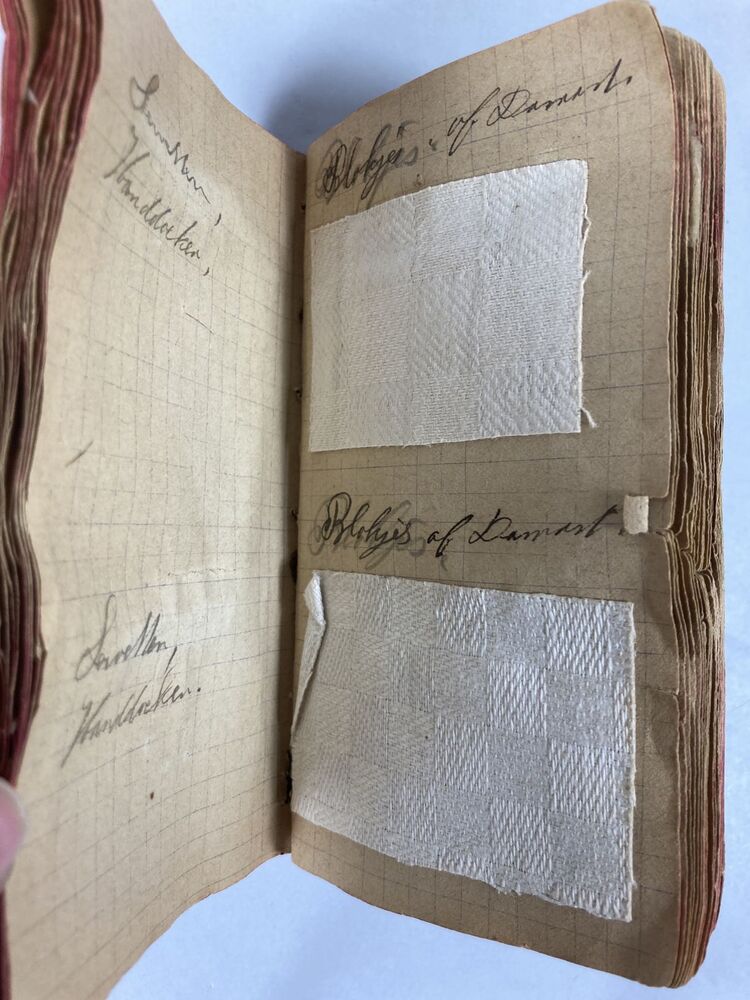 Servetten,
Handdoeken,
Servetten,
Handdoeken.
Blokjes of Damast.
Blokjes of Damast.